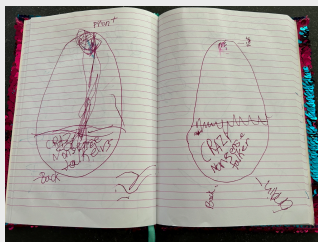 Front
CRAZY
Nonsense
talkers
Back
CRAZY
Nonsense
talker
Back